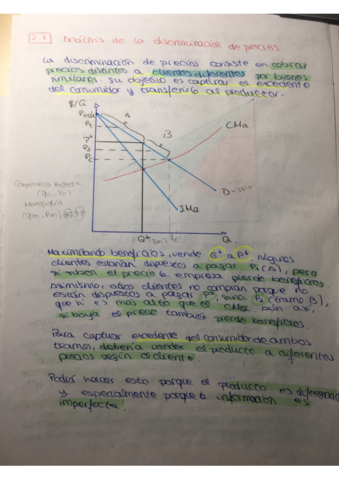 2.1 Análisis de la discriminación de precios.
La discriminación de precios consiste en cobrar
precios distintos a clientes diferentes por bienes
similares. Su objetivo es capturar el excedente
del consumidor y transferirlo al productor.
$/Q
Pmáx
A
P1
P*
B
CMa
P2
Pc
Competencia Perfecta
Monopolio
D=IMe
IMa
Q*
Q
Maximizando beneficios, vende Q* a P*. Algunos
clientes estarían dispuestos a pagar P1 (A), pero
si suben el precio la empresa pierde beneficios
asimismo, otros clientes no compran porque no
están dispuestos a pagar P*, sino P2 (tramo B),
que si es más alto que el CMa, aún así,
si baja el precio también pierde beneficios
Para capturar excedente del consumidor de ambos
tramos, debería vender el producto a diferentes
precios según cliente.
Podría hacer esto porque el producto es diferenciado
y especialmente porque la información es
imperfecta.